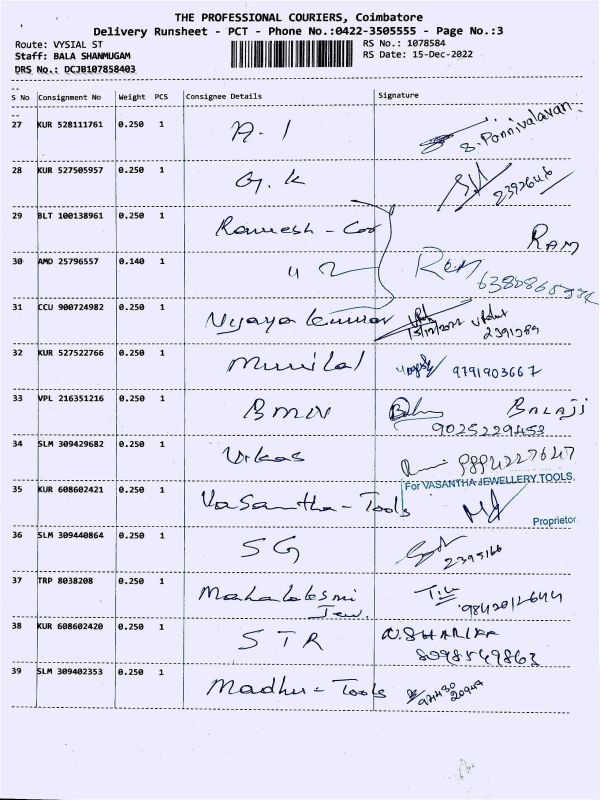 THE PROFESSIONAL COURIERS, Coimbatore
Delivery Runsheet - PCT - Phone No.:0422-3505555 - Page No.:3
Route: VYSIAL ST RS No.: 1078584
Staff: BALA SHANMUGAM RS Date: 15-Dec-2022
DRS No.: DCJB107858403
S No Consignment No Weight PCS Consignee Details Signature
27 KUR 528111761 0.250 1 A-1 S. Ponnivalavan
28 KUR 527505957 0.250 1 G. K 2392646
29 BLT 100138961 0.250 1 Ramesh - RAM
30 AMD 25796557 0.140 1 Ram
31 CCU 900724982 0.250 1 Vijaya kumar 15/12/2022
32 KUR 527522766 0.250 1 Munilal 9791903667
33 VPL 216351216 0.250 1 BMN BALAJI
9025229453
34 SLM 309429682 0.250 1 Vikas
35 KUR 608602421 0.250 1 Vasantha - Tools For VASANTHA JEWELLERY TOOLS.
Proprietor
36 SLM 309440864 0.250 1 SG 2395166
37 TRP 8038208 0.250 1 Mahalaksmi
Jew.
38 KUR 608602420 0.250 1 STR
8098549863
39 SLM 309402353 0.250 1 Madhu - Tools